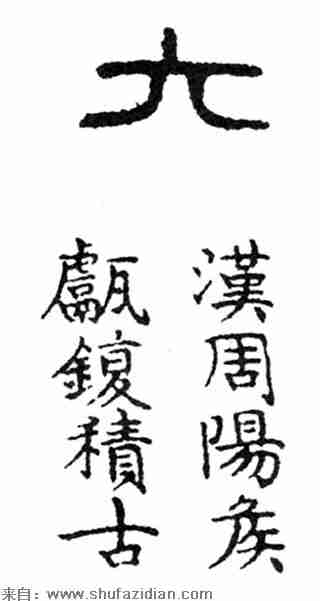 六
漢周陽侯
甗鍑積古
来自：www.shufazidian.com